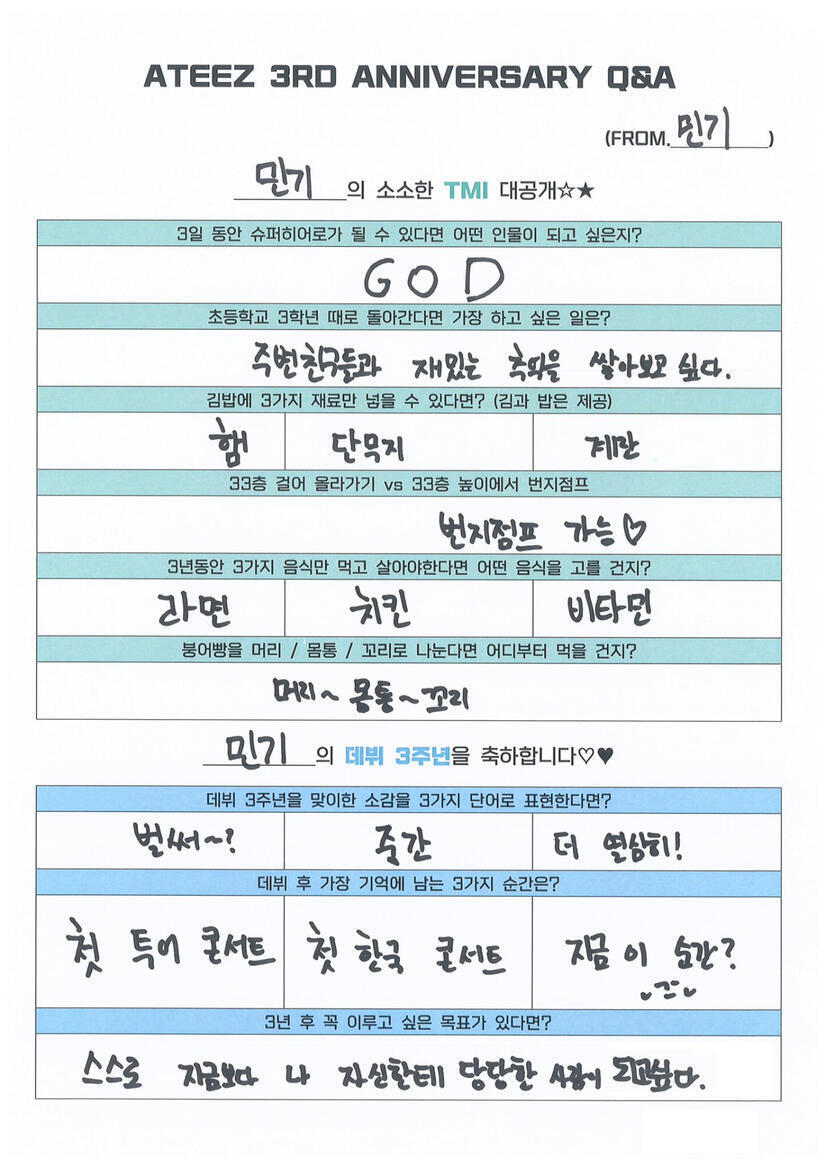 ATEEZ 3RD ANNIVERSARY Q&A
(FROM. 민기 )
민기의 소소한 TMI 대공개☆★
3일 동안 슈퍼히어로가 될 수 있다면 어떤 인물이 되고 싶은지?
GOD
초등학교 3학년 때로 돌아간다면 가장 하고 싶은 일은?
주변친구들과 재밌는 추억을 쌓아보고 싶다.
김밥에 3가지 재료만 넣을 수 있다면? (김과 밥은 제공)
햄 단무지 계란
33층 걸어 올라가기 vs 33층 높이에서 번지점프
번지점프 가능♡
3년동안 3가지 음식만 먹고 살아야한다면 어떤 음식을 고를 건지?
라면 치킨 비타민
붕어빵을 머리 / 몸통 / 꼬리로 나눈다면 어디부터 먹을 건지?
머리~몸통~꼬리
민기의 데뷔 3주년을 축하합니다♡♥
데뷔 3주년을 맞이한 소감을 3가지 단어로 표현한다면?
벌써~? 중간 더 열심히!
데뷔 후 가장 기억에 남는 3가지 순간은?
첫 투어 콘서트 첫 한국 콘서트 지금 이 순간?
3년 후 꼭 이루고 싶은 목표가 있다면?
스스로 지금보다 나 자신한테 당당한 사람이 되고싶다.